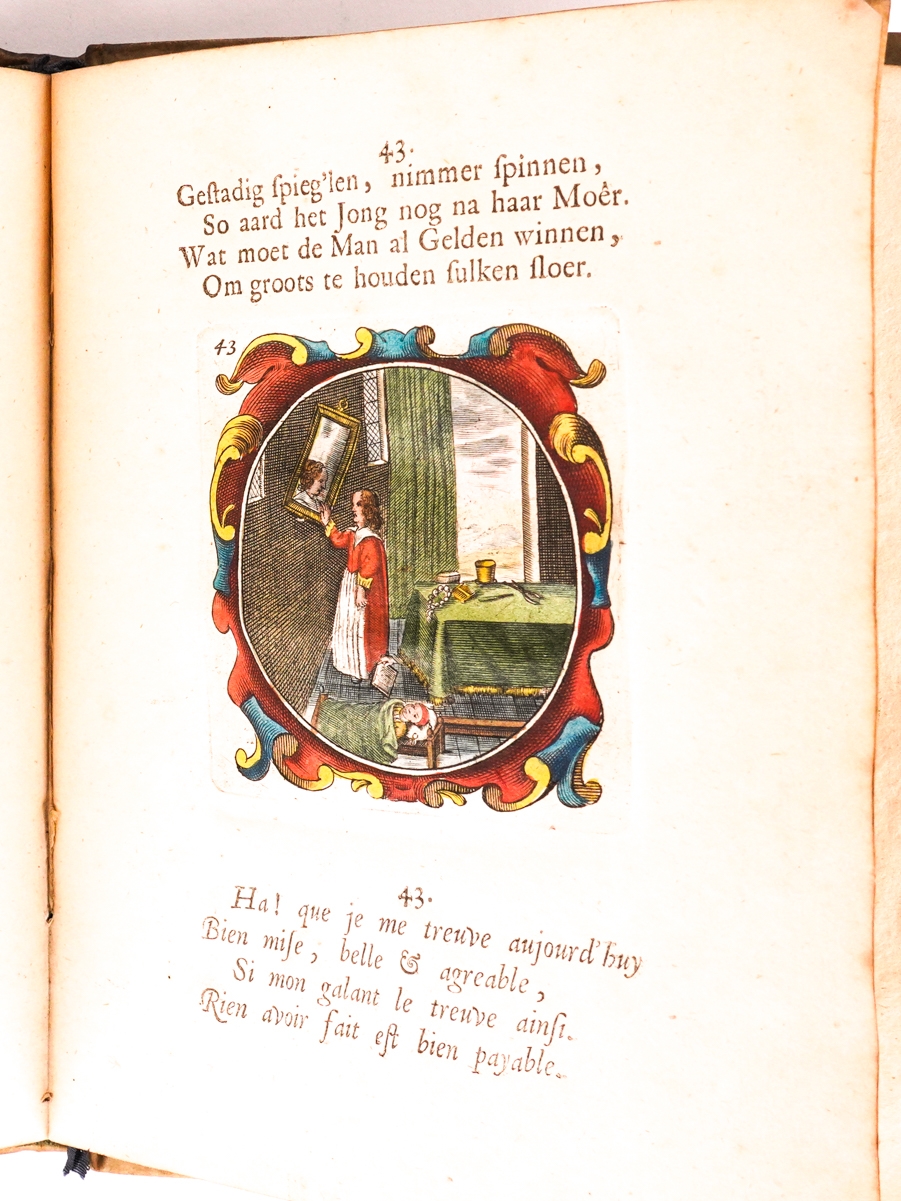 43.
Geſtadig ſpieg'len, nimmer ſpinnen,
So aard het Jong nog na haar Moêr.
Wat moet de Man al Gelden winnen,
Om groots te houden ſulken ſloer.
43
43.
Ha! que je me treuve aujourd'huy
Bien miſe, belle & agreable,
Si mon galant le treuve ainſi.
Rien avoir fait eſt bien payable.